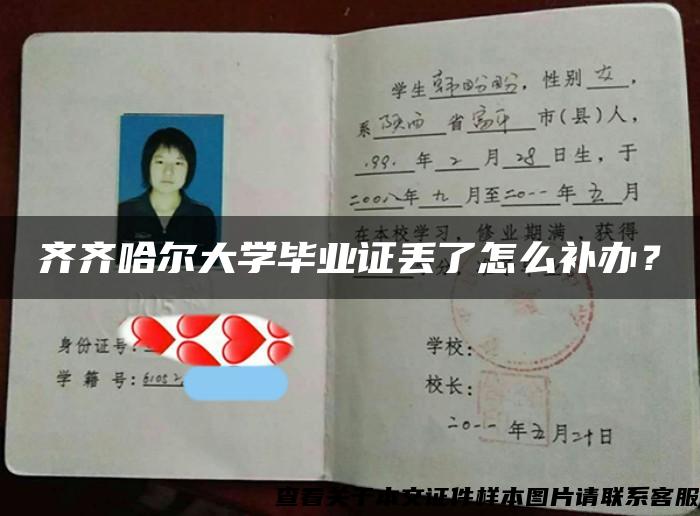 学生韩盼盼，性别女，
系陕西省富平市(县)人，
1991年2月28日生，于
二00八年九月至二0一一年五月
在本校学习，修业期满，获得
齐齐哈尔大学毕业证丢了怎么补办？
身份证号:
学籍号:61052
学校:
校长:
二0一一年五月二十日
查看关于本文证件样本图片请联系客服